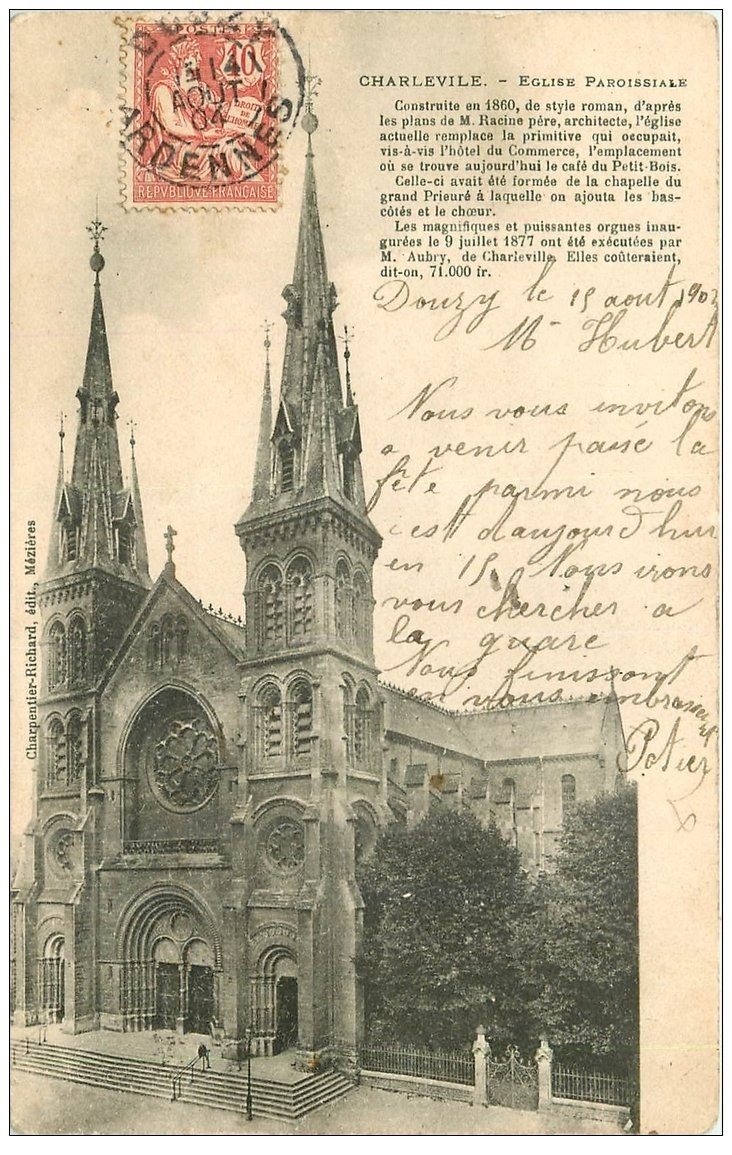 POSTES
10
DROITS
DE
L'HOMME
REPVBLIQVE FRANÇAISE
14
AOUT
04
ARDENNES
CHARLEVILE. - EGLISE PAROISSIALE
Construite en 1860, de style roman, d'après
les plans de M. Racine père, architecte, l'église
actuelle remplace la primitive qui occupait,
vis-à-vis l'hôtel du Commerce, l'emplacement
où se trouve aujourd'hui le café du Petit-Bois.
Celle-ci avait été formée de la chapelle du
grand Prieuré à laquelle on ajouta les bas-
côtés et le chœur.
Les magnifiques et puissantes orgues inau-
gurées le 9 juillet 1877 ont été exécutées par
M. Aubry, de Charleville. Elles coûteraient,
dit-on, 71.000 fr.
Douzy le 15 aout
Mr Hubert
Nous vous inviton
a venir passé la
fête parmi nous
c'est d'aujourd'hui
en 15. Nous irons
vous chercher a
la guare
Nous finissont
en vous embrassant
Charpentier-Richard, édit., Mézières